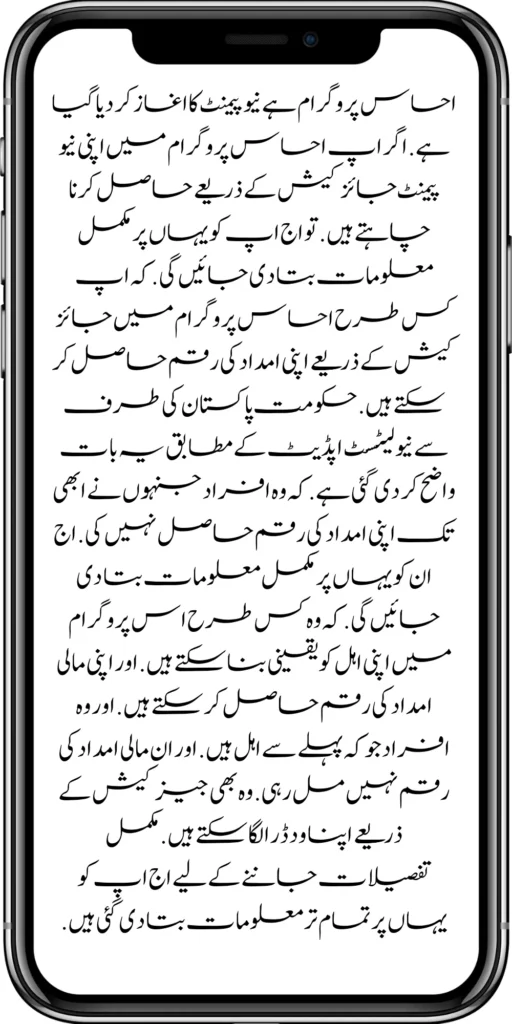 احساس پروگرام ہے نیو پیمنٹ کا اغاز کر دیا گیا
ہے. اگر اپ احساس پروگرام میں اپنی نیو
پیمنٹ جائز کیش کے ذریعے حاصل کرنا
چاہتے ہیں. تو اج اپ کو یہاں پر مکمل
معلومات بتا دی جائیں گی. کہ اپ
کس طرح احساس پروگرام میں جائز
کیش کے ذریعے اپنی امداد کی رقم حاصل کر
سکتے ہیں. حکومت پاکستان کی طرف
سے نیو لیٹسٹ اپڈیٹ کے مطابق یہ بات
واضح کر دی گئی ہے. کہ وہ افراد جنہوں نے ابھی
تک اپنی امداد کی رقم حاصل نہیں کی. اج
ان کو یہاں پر مکمل معلومات بتا دی
جائیں گی. کہ وہ کس طرح اس پروگرام
میں اپنی اہل کو یقینی بنا سکتے ہیں. اور اپنی مالی
امداد کی رقم حاصل کر سکتے ہیں. اور وہ
افراد جو کہ پہلے سے اہل ہیں. اور ان مالی امداد کی
رقم نہیں مل رہی. وہ بھی جیز کیش کے
ذریعے اپنا ودڈرا لگا سکتے ہیں. مکمل
تفصیلات جاننے کے لیے اج اپ کو
یہاں پر تمام تر معلومات بتا دی گئی ہیں.